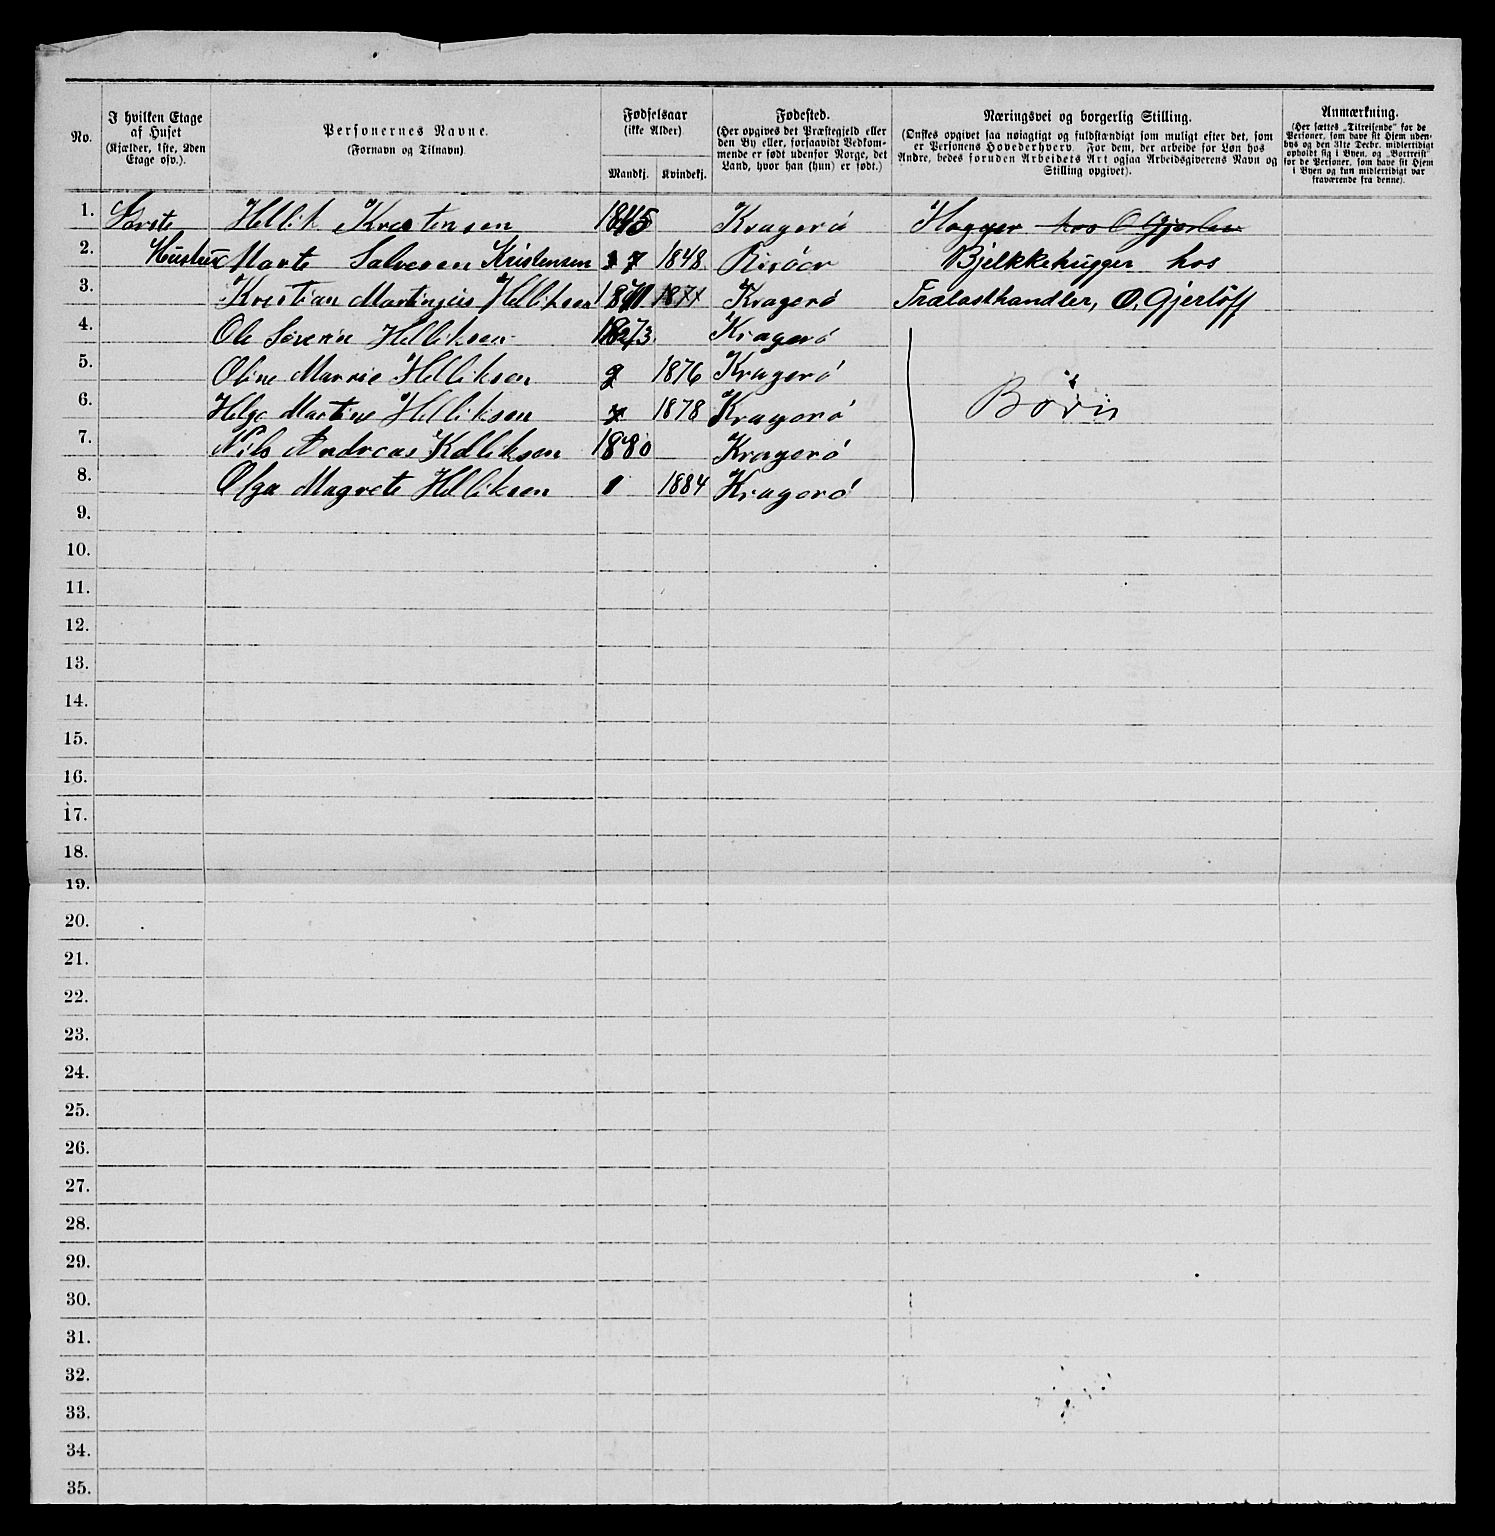 No.
I hvilken Etage
af Huset
(Kjælder, 1ste, 2den
Etage osv.).
Personernes Navne.
(Fornavn og Tilnavn)
Fødselsaar
(ikke Alder)
Mandkj. Kvindekj.
Fødested.
(Her opgives det Præstegjeld eller
den By eller, forsaavidt Vedkom-
mende er født udenfor Norge, det
Land, hvor han (hun) er født.)
Næringsvei og borgerlig Stilling.
(Ønskes opgivet saa nøiagtigt og fuldstændigt som muligt efter det, som
er Personens Hovederhverv. For dem, der arbeide for Løn hos
Andre, bedes foruden Arbeidets Art ogsaa Arbeidsgiverens Navn og
Stilling opgivet).
Anmærkning.
(Her sættes „Tilreisende“ for de
Personer, som have sit Hjem uden-
bys og den 31te Decbr. midlertidigt
opholdt sig i Byen, og „Bortreist“
for de Personer, som have sit Hjem
i Byen og kun midlertidigt var
fraværende fra denne).
1. Første Hellik Kristensen 1845 Kragerö Hogger hos O Gjerløv
2. Hustru Marte Salvesen Kristensen 1848 Risöer Bjelkkehugger hos
3. Kristian Martinius Helliksen 1871 1871 Kragerö Trælasthandler, O, Gjerlöff
4. Ole Severin Helliksen 1873 Kragerö
5. Oline Marrie Helliksen 1876 Kragerö
6. Helga Martine Helliksen 1878 Kragerö Börn
7. Nils Andreas Helliksen 1880 Kragerö
8. Olga Magrete Helliksen 1884 Kragerö
9.
10.
11.
12.
13.
14.
15.
16.
17.
18.
19.
20.
21.
22.
23.
24.
25.
26.
27.
28.
29.
30.
31.
32.
33.
34.
35.